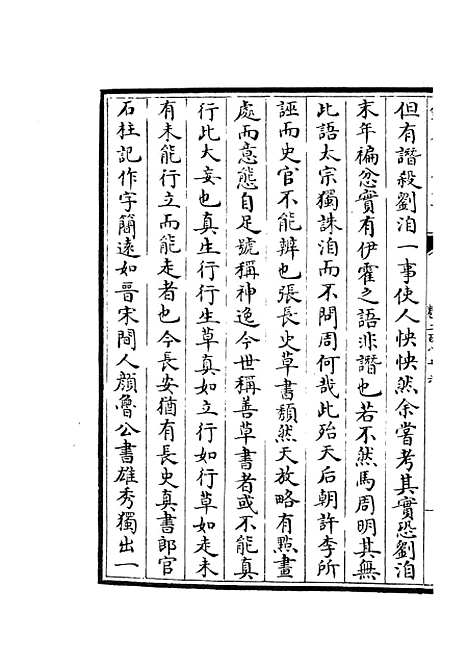 但有譖殺劉洎一事使人怏怏然余嘗考其實恐劉洎
末年褊忿實有伊霍之語非譖也若不然馬周明其無
此語太宗獨誅洎而不問周何哉此殆天后朝許李所
誣而史官不能辨也張長史草書頹然天放略有點畫
處而意態自足號稱神逸今世稱善草書者或不能真
行此大妄也真生行行生草真如立行如行草如走未
有未能行立而能走者也今長安猶有長史真書郎官
石柱記作字簡遠如晉宋間人顔魯公書雄秀獨出一